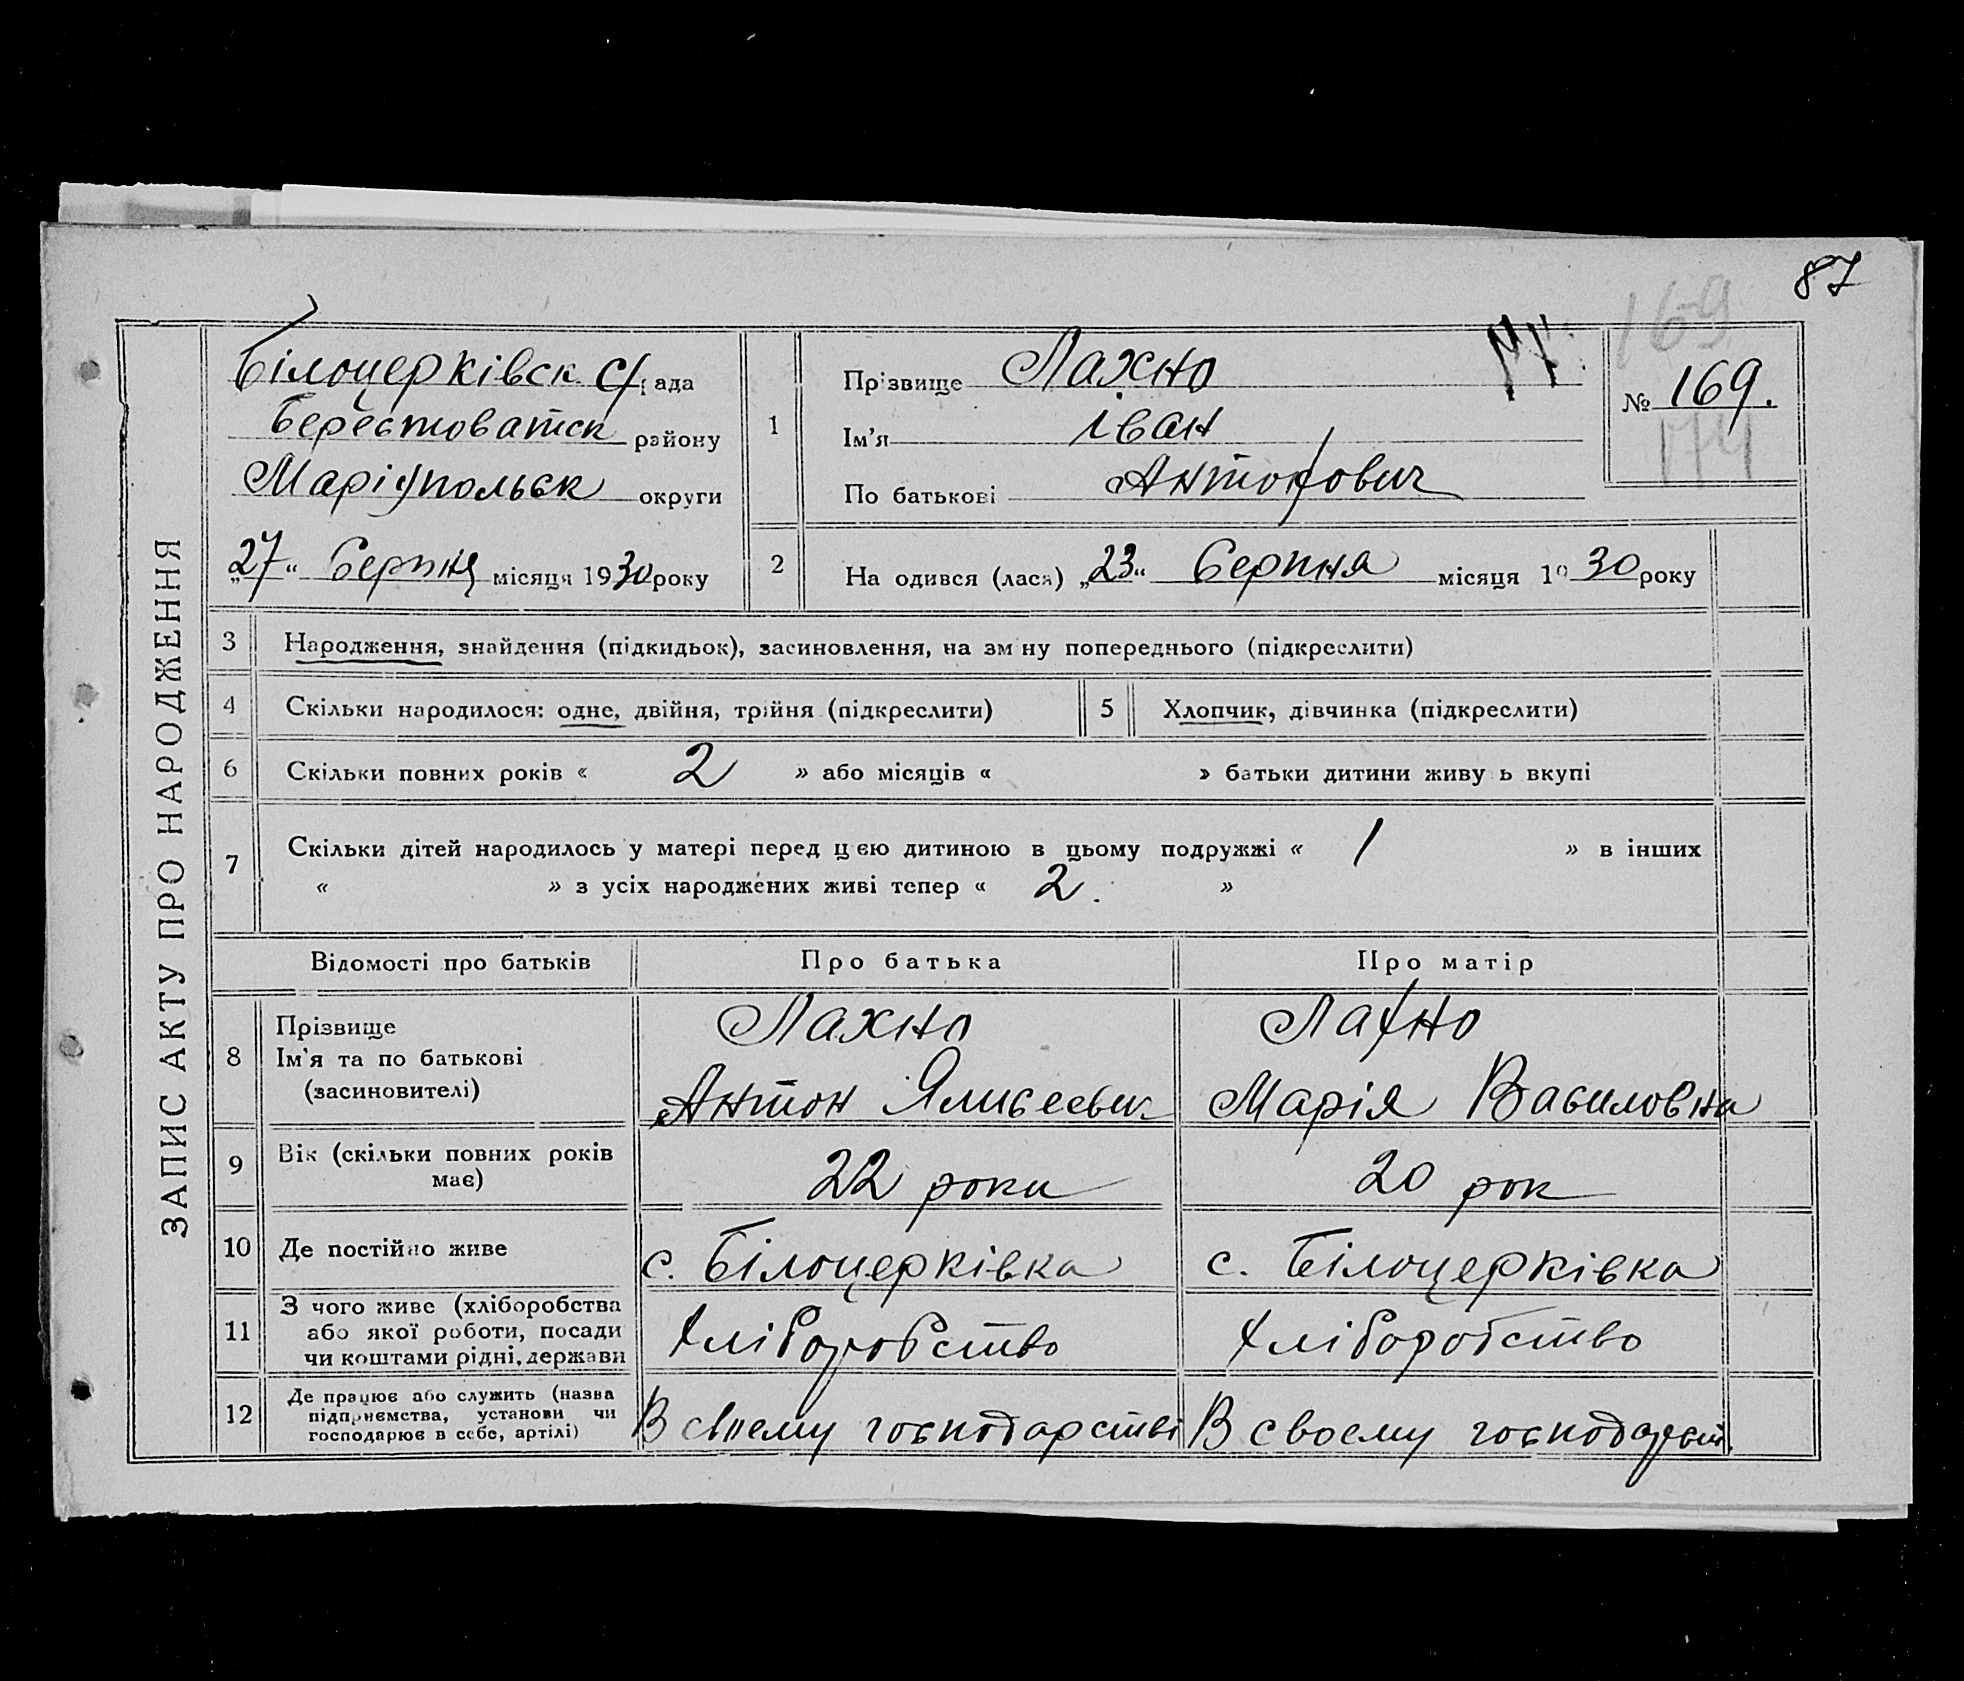 87
169
ЗАПИС АКТУ ПРО НАРОДЖЕННЯ
Білоцерківск. с/рада
Берестоватск району
Маріупольск округи
„27“ Серпня місяця 1930 року
1
Прізвище Лахно
Ім'я Іван
По батькові Антонович
№ 169.
174
2
На одився (лася) „23“ Серпня місяця 1930 року
3 Народження, знайдення (підкидьок), засиновлення, на зм ну попереднього (підкреслити)
4 Скільки народилося: одне, двійня, трійня (підкреслити)
5 Хлопчик, дівчинка (підкреслити)
6 Скільки повних років « 2 » або місяців « » батьки дитини живу ь вкупі
7 Скільки дітей народилось у матері перед цією дитиною в цьому подружжі « 1 » в інших
« » з усіх народжених живі тепер « 2. »
Відомості про батьків Про батька Про матір
8
Прізвище
Ім'я та по батькові
(засиновителі)
Лахно
Антон Ялисеевич
Лахно
Марія Василовна
9 Вік (скільки повних років
має)
22 роки
20 рок
10 Де постійно живе
с. Білоцерківка
с. Білоцерківка
11
З чого живе (хліборобства
або якої роботи, посади
чи коштами рідні, держави
Хліборобство
Хліборобство
12
Де працює або служить (назва
підприємства, установи чи
господарює в себе, артілі)
В своему господарстві
В своему господарст.